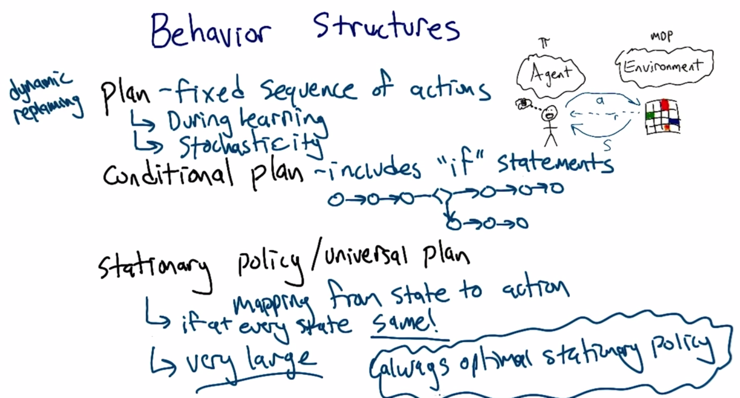 Behavior Structures
π
MDP
Agent
Environment
a
r
s
dynamic
replaming
plan - fixed sequence of actions
↳ During learning
↳ Stochasticity
conditional plan - includes "if" statements
stationary policy/universal plan
↳ mapping from state to action
if at every state same!
↳ very large
(always optimal stationary policy